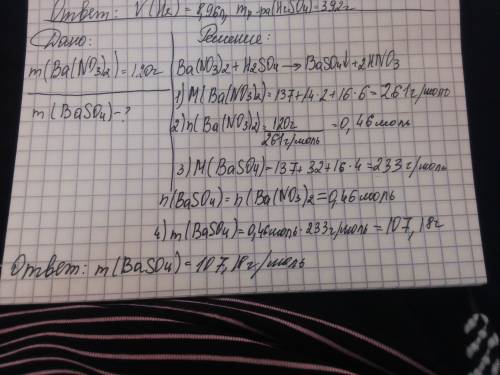 Ответ: V(H₂)=8,96л, m р-ра(H₂SO₄)=392г
Дано:
m(Ba(NO₃)₂)=120г
m(BaSO₄)-?
Решение:
Ba(NO₃)₂+H₂SO₄→BaSO₄↓+2HNO₃
1) M(Ba(NO₃)₂)=137+14·2+16·6=261г/моль
2) n(Ba(NO₃)₂)=120г/261г/моль=0,46моль
3) M(BaSO₄)=137+32+16·4=233г/моль
n(BaSO₄)=n(Ba(NO₃)₂=0,46моль
4) m(BaSO₄)=0,46моль·233г/моль=107,18г
Ответ: m(BaSO₄)=107,18г/моль